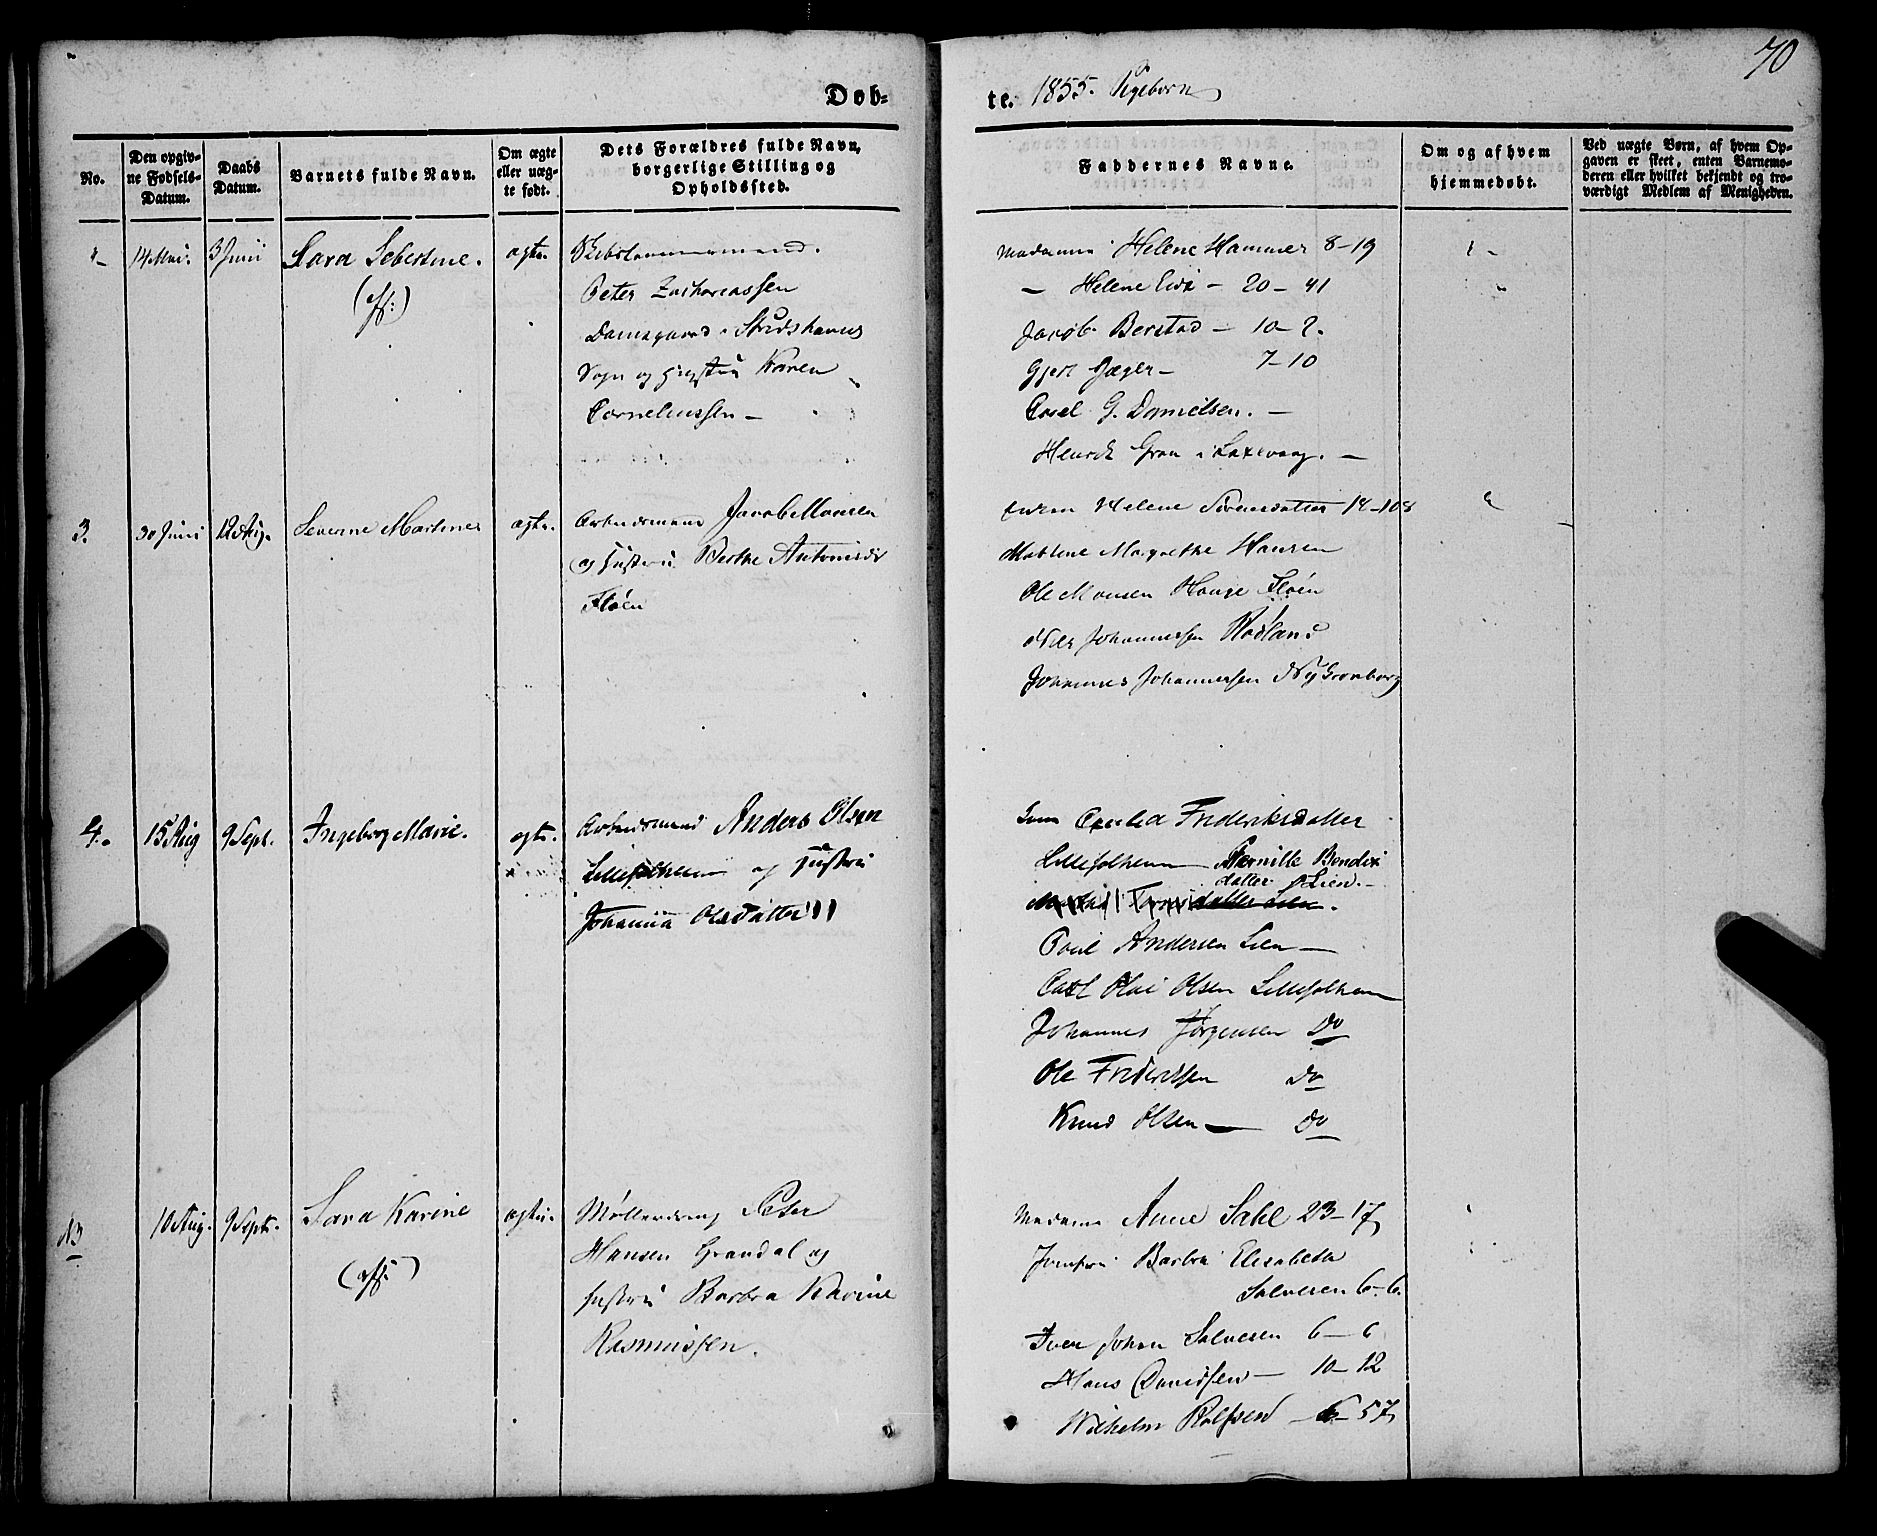 70
Døb-
te. 1855. Pigebørn
No.
Den opgiv-
ne Fødsels-
Datum.
Daabs
Datum.
Barnets fulde Navn.
Om ægte
eller uæg-
te født.
Dets Forældres fulde Navn,
borgerlige Stilling og
Opholdssted.
Faddernes Navne.
Om og af hvem
hjemmedøbt.
Ved uægte Børn, af hvem Op-
gaven er skeet, enten Barnemo-
deren eller hvilket bekjendt og tro-
værdigt Medlem af Menigheden.
14 Mai. 3 Juni Sara Sebertine. ægte.
Peter Zachariassen
Damsgaard i Strudshavns
Sogn og Hustru Karen
Corneliussen -
Madame Helene Hammer 8-19
- Helene Eide - 20-41
Jacob Berstad - 10-2.
Gjert Jæger - 7-10
Carl G. Danielsen. -
Henrik Gran i Laxevaag. -
3. 30 Juni 12 Aug. Severine Martine ægte. Arbeidsmand Jacob Monsen
og Hustru Berthe Antonisdr
Fløen
Helene Sørensdatter 14-108
Mathine Margrethe Hansen
Ole Monsen Hauge Fløen
Nils Johannessen Rødland
Johannes Johannessen Ny Grønborg
4. 15 Aug 9 Sept. Ingeborg Marie. ægte. Arbeidsmand Anders Olsen
Lillefolheim og Hustru
Johanna Olsdatter
Cecilia Frideriksdatter
Lillefolheim Pernille Bendix
datter Lien. -
Poul Andersen Lien -
Carl Olai Olsen Lillefolheim
Johannes Jørgensen Do
Ole Friderikssen Do
Knud Olsen - Do
13 10 Aug. 9 Septr. Sara Karine ægte. Møllerdreng Peter
Hansen Grandal og
Hustru Barbra Karine
Rasmussen.
Madame Anne Sahl 23-17
Jomfru Barbra Elisabeth
Salvesen 6-6.
Iver Johan Salvesen 6-6
Hans Davidsen - 10-12
Wilhelm Rolfsen - 6-57